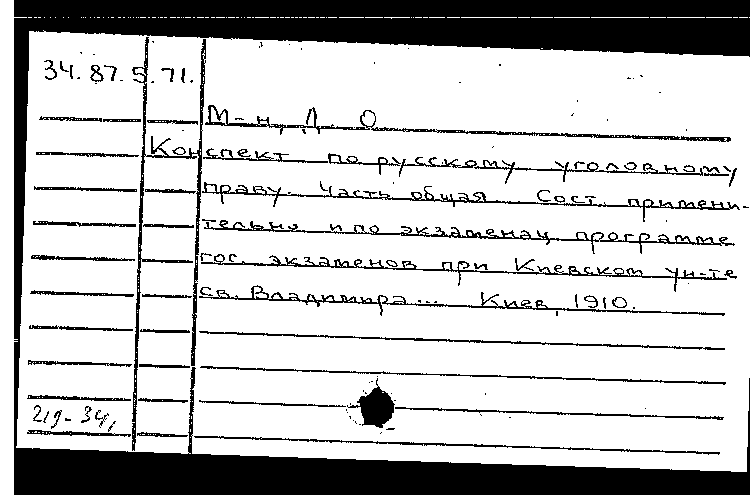 34.87.5.71.
М-н, Д. О
Конспект по русскому уголовному
праву. Часть общая. Сост. примени-
тельно и по экзаменац. программе
гос. экзаменов при Киевском ун-те
св. Владимира... Киев, 1910.
219-34,